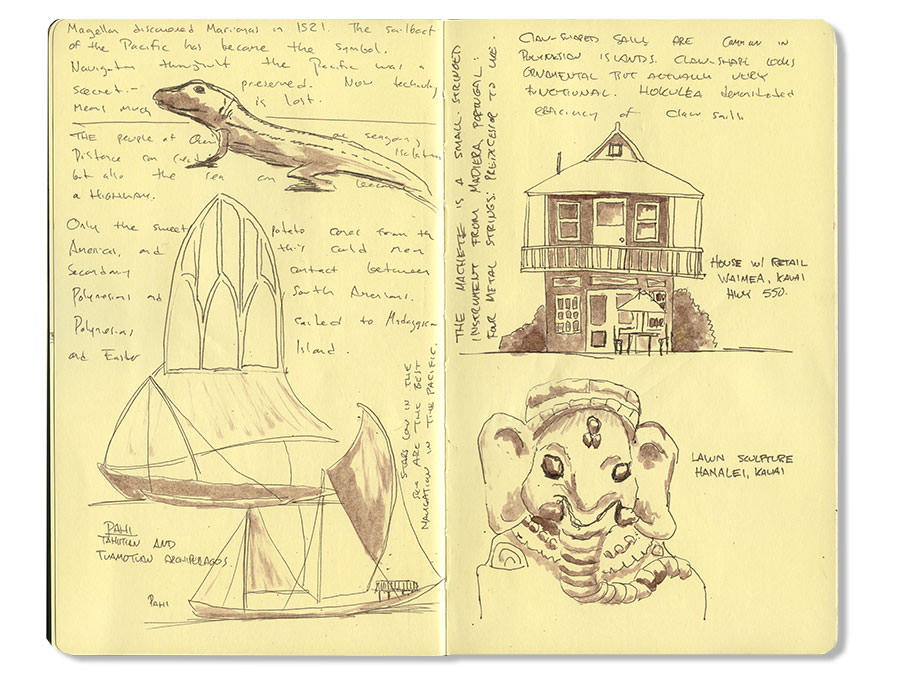 Magellan discovered Marianas in 1521. The sailboat
of the Pacific has become the symbol.
Navigation throughout the Pacific was a
secret. preserved. Now technology
means much is lost.
THE people of
Distance can isolation
but also the sea can become
a HIGHWAY.
Only the sweet potato comes from the
Americas, and this could mean
Secondary contact between
Polynesians and South Americans.
Polynesians sailed to Madagascar
and Easter Island.
STARS LOW IN THE
SEA ARE THE BEST
NAVIGATION IN THE PACIFIC.
PAHI
TAHITIAN AND
TUAMOTUAN ARCHIPELAGOS
PAHI
THE MACHETE IS A SMALL STRINGED
INSTRUMENT FROM MADIERA, PORTUGAL:
FOUR METAL STRINGS: PREDECESSOR TO UKE.
CLAW-SHAPED SAILS ARE COMMON IN
POLYNESIAN ISLANDS. CLAW-SHAPE LOOKS
ORNAMENTAL BUT ACTUALLY VERY
FUNCTIONAL. HOKULEA demonstrated
efficiency of claw sails
HOUSE W/ RETAIL
WAIMEA, KAUAI
HWY 550.
LAWN SCULPTURE
HANALEI, KAUAI